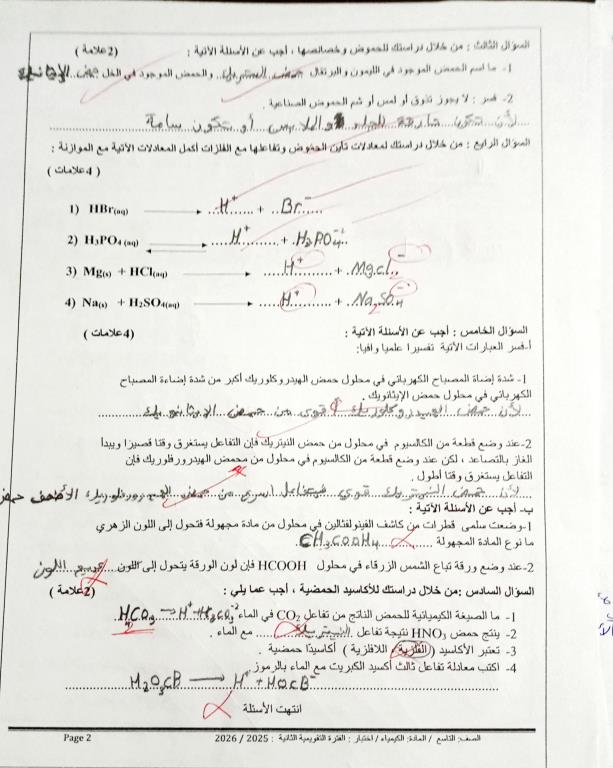 السؤال الثالث : من خلال دراستك للحموض وخصائصها ، أجب عن الأسئلة الآتية : (2 علامة )
1- ما اسم الحمض الموجود في الليمون والبرتقال حمض الستريك والحمض الموجود في الخل حمض الإيثانويك
2- فسر : لا يجوز تذوق أو لمس أو شم الحموض الصناعية .
لأن تكون حارقة للجلد والملابس أو تكون سامة
السؤال الرابع : من خلال دراستك لمعادلات تأين الحموض وتفاعلها مع الفلزات أكمل المعادلات الآتية مع الموازنة :
( 4 علامات )
1) HBr(aq) → H⁺ + Br⁻
2) H₃PO₄ (aq) → H⁺ + H₂PO₄⁻¹
3) Mg(s) + HCl(aq) → H⁺ + Mgcl₂⁻
4) Na(s) + H2SO4(aq) → H⁺ + Na₂SO₄⁻
السؤال الخامس : أجب عن الأسئلة الآتية : (4 علامات )
أ-فسر العبارات الآتية تفسيرا علميا وافيا:
1- شدة إضاءة المصباح الكهربائي في محلول حمض الهيدروكلوريك أكبر من شدة إضاءة المصباح
الكهربائي في محلول حمض الإيثانويك .
لأن حمض الهيدروكلوريك أقوى من حمض الإيثانويك
2-عند وضع قطعة من الكالسيوم في محلول من حمض النيتريك فإن التفاعل يستغرق وقتا قصيرا ويبدأ
الغاز بالتصاعد ، لكن عند وضع قطعة من الكالسيوم في محلول من محمض الهيدروفلوريك فإن
التفاعل يستغرق وقتا أطول .
لأن حمض النيتريك قوي فيتفاعل اسرع من حمض الهيدروفلوريك الأضعف حمض
ب- أجب عن الأسئلة الآتية :
1-وضعت سلمى قطرات من كاشف الفينولفثالين في محلول من مادة مجهولة فتحول إلى اللون الزهري
ما نوع المادة المجهولة CH₃COOH₄
2-عند وضع ورقة تباع الشمس الزرقاء في محلول HCOOH فإن لون الورقة يتحول إلى اللون عديم اللون
السؤال السادس :من خلال دراستك للأكاسيد الحمضية ، أجب عما يلي : (2 علامة )
1- ما الصيغة الكيميائية للحمض الناتج من تفاعل CO2 في الماء
2- ينتج حمض HNO3 نتيجة تفاعل النيتريك مع الماء .
3- تعتبر الأكاسيد (الفلزية، اللافلزية ) أكاسيدًا حمضية .
4- اكتب معادلة تفاعل ثالث أكسيد الكبريت مع الماء بالرموز
M₂O₃CB → H⁺ + HOCB⁻
انتهت الأسئلة
الصف: التاسع / المادة: الكيمياء / اختبار : الفترة التقويمية الثانية : 2025 / 2026 Page 2